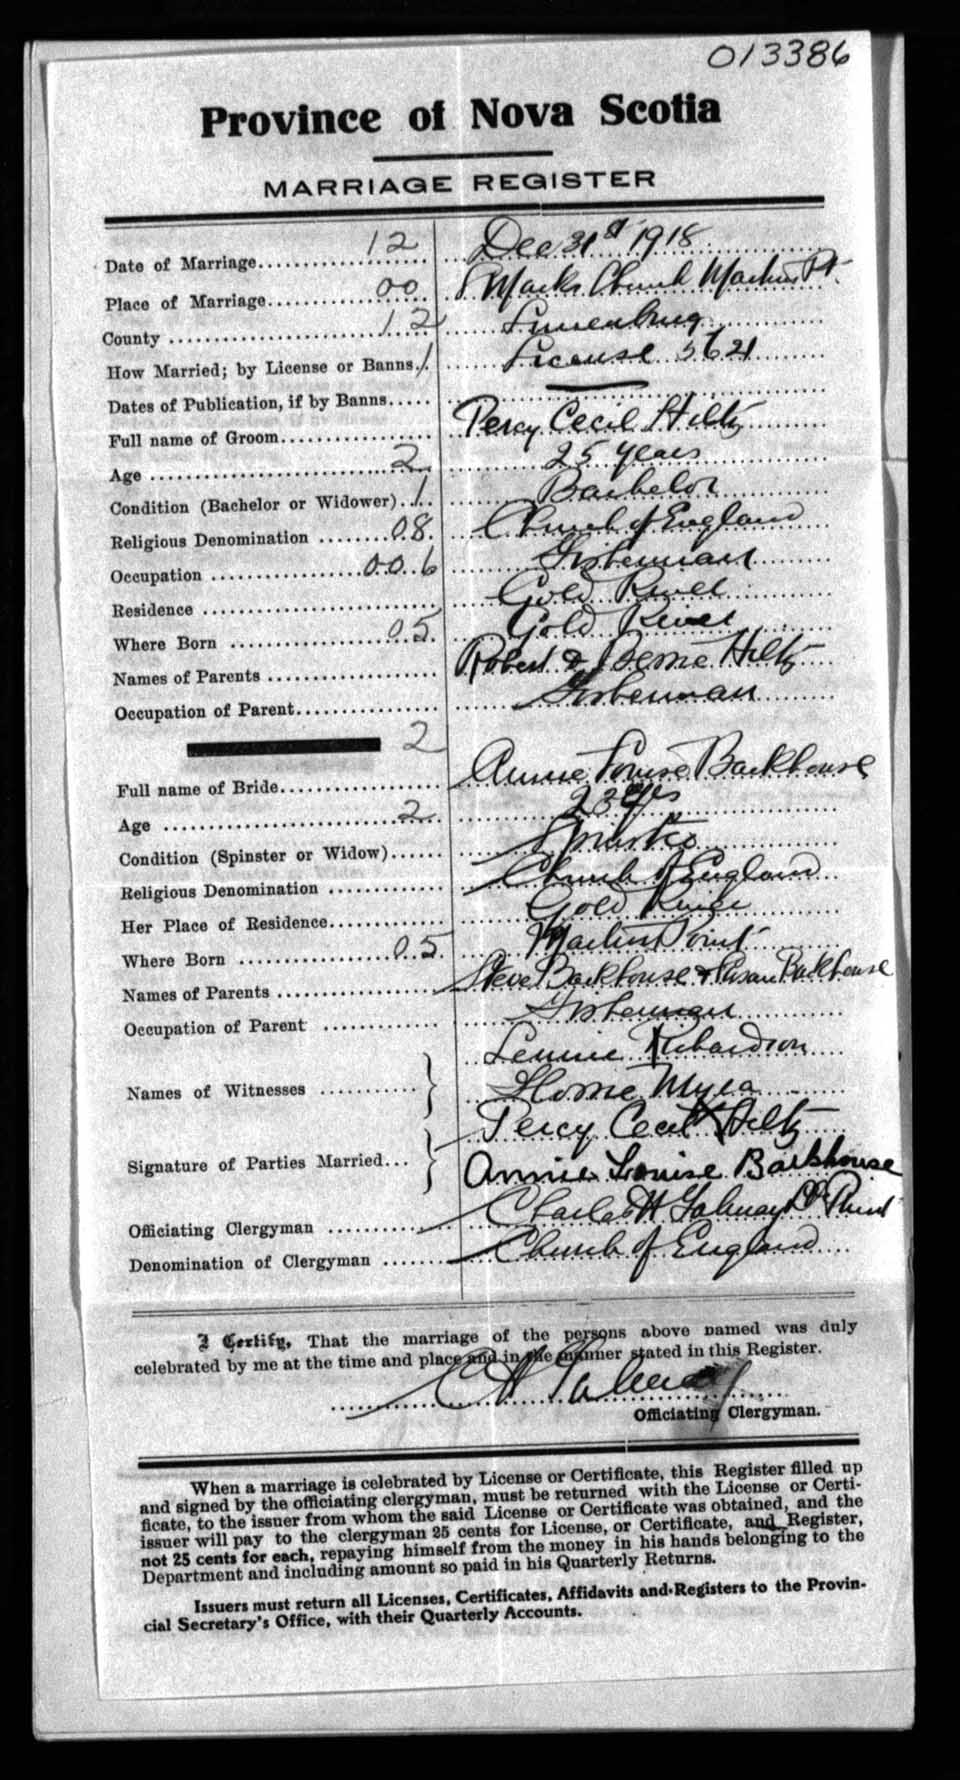 013386
Province of Nova Scotia
MARRIAGE REGISTER
Date of Marriage 12 Dec 31st 1918
Place of Marriage 00 S Marks Church Martins Pt
County 12 Lunenburg
How Married; by License or Banns 1 License 5621
Dates of Publication, if by Banns
Full name of Groom Percy Cecil Hiltz
Age 2 25 years
Condition (Bachelor or Widower) 1 Bachelor
Religious Denomination 08 Church of England
Occupation 006 Fisherman
Residence Gold River
Where Born 05 Gold River
Names of Parents Robert & Hiltz
Occupation of Parent Fisherman
2
Full name of Bride Annie Louise Barkhouse
Age 2 23 yrs
Condition (Spinster or Widow) Spinster
Religious Denomination Church of England
Her Place of Residence Gold River
Where Born 05 Martins Point
Names of Parents Steve Barkhouse & Susan Barkhouse
Occupation of Parent Fisherman
Lennie Richardson
Names of Witnesses Myra
Percy Cecil Hiltz
Signature of Parties Married...
Annie Louise Barkhouse
Officiating Clergyman Charles H
Denomination of Clergyman Church of England
I Certify, That the marriage of the persons above named was duly
celebrated by me at the time and place and in the manner stated in this Register.
C H
Officiating Clergyman.
When a marriage is celebrated by License or Certificate, this Register filled up
and signed by the officiating clergyman, must be returned with the License or Certi-
ficate, to the issuer from whom the said License or Certificate was obtained, and the
issuer will pay to the clergyman 25 cents for License, or Certificate, and Register,
not 25 cents for each, repaying himself from the money in his hands belonging to the
Department and including amount so paid in his Quarterly Returns.
Issuers must return all Licenses, Certificates, Affidavits and Registers to the Provin-
cial Secretary's Office, with their Quarterly Accounts.